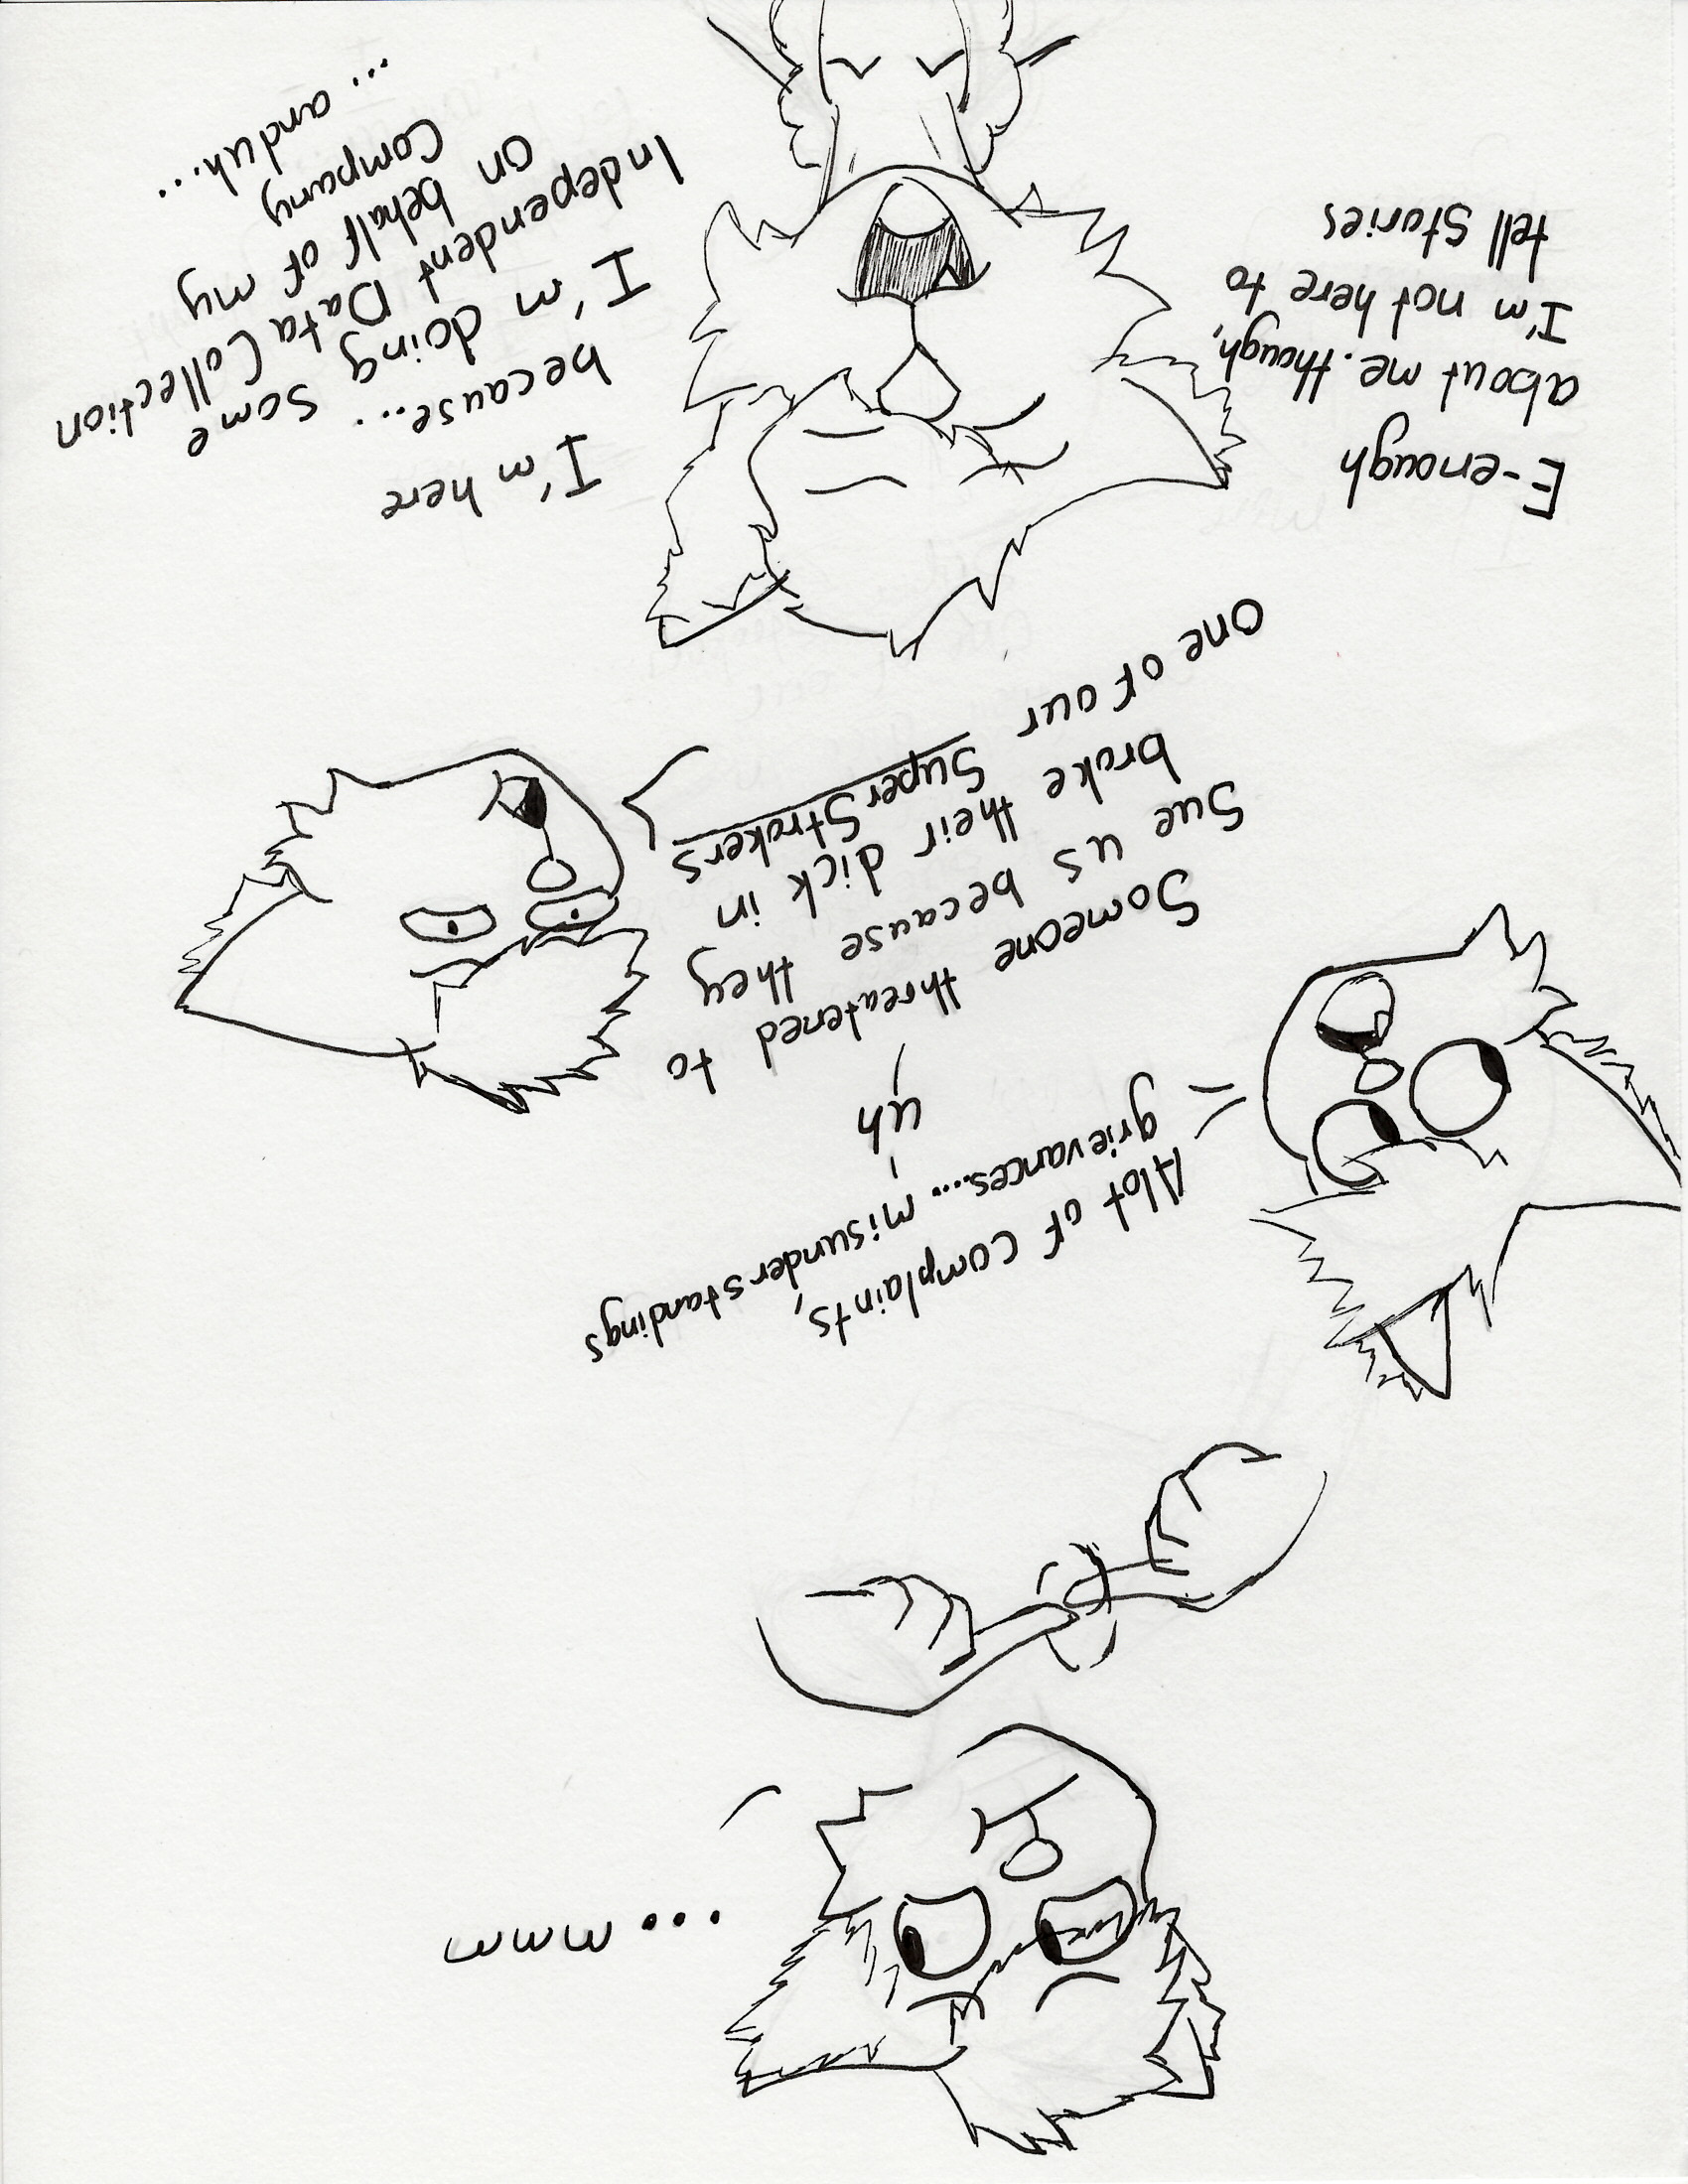 ... mmm
Alot of complaints,
grievances.... misunderstandings
uh
Someone threatened to
Sue us because they
broke their dick in
one of our Super Strokers
E-enough
about me. though,
I'm not here to
tell Stories
I'm here
because...
I'm doing some
Independent Data Collection
on behalf of my
Company
... and uh...